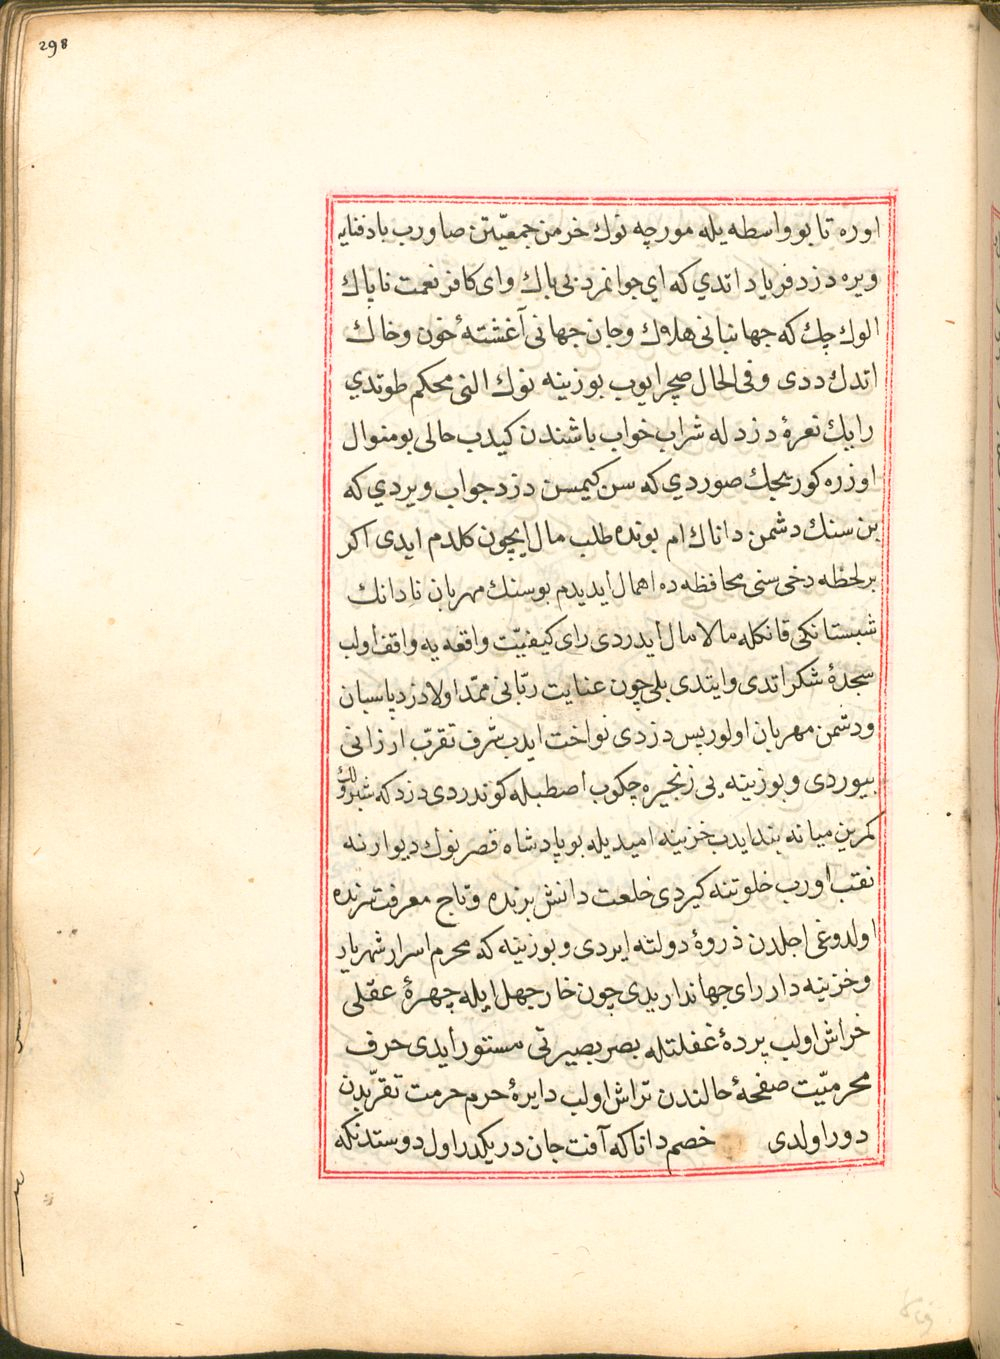 298
اوره تا بو واسطه يله مورچه نوك خرمن جمعيّتن صاورب باد فنايه
ويره دزد فرياد اتدي كه اي جوانمرد بى باك واى كافر نعمت ناپاك
الوك چك كه جهانبانى هلاك وجان جهانى آغشتهٔ خون وخاك
اتدك ددى وفى الحال صچرايوب بوزينه نوك النى محكم طوتدي
رايك نعرهٔ دزدله شراب خواب باشندن كيدب حالى بو منوال
اوزره كوريجك صوردي كه سن كيمسن دزد جواب ويردي كه
بن سنك دشمن داناك ام بونده طلب مال ايچون كلدم ايدى اكر
بر لحظه دخى سنى محافظه ده اهمال ايديدم بو سنك مهربان نادانك
شبستانكى قانكله مالامال ايدردى راى كيفيّت واقعه يه واقف اولب
سجدهٔ شكر اتدى وايتدى بلى چون عنايت ربّانى ممدّ اولا دزد پاسبان
ودشمن مهربان اولور پس دزدى نواخت ايدب شرف تقرّب ارزانى
بيوردى وبوزينه يى زنجيره چكوب اصطبله كوندردى دزد كه شبرولك
كمرين ميانه بند ايدب خزينه اميديله بو پادشاه قصرنوك ديوارنه
نقب اورب خلوتنه كيردى خلعت دانش برنده وتاج معرفت سرنده
اولدوغى اجلدن ذروهٔ دولته ايردى وبوزينه كه محرم اسرار شهريار
وخزينه دار راى جهاندار يدى چون خار جهل ايله چهرهٔ عقلى
خراش اولب پردهٔ غفلتله بصر بصيرتى مستور ايدى حرف
محرميّت صفحهٔ حالندن تراش اولب دايرهٔ حرم حرمت تقرّبدن
دور اولدى خصم دانا كه آفت جان در يكدر اول دوستدنكه